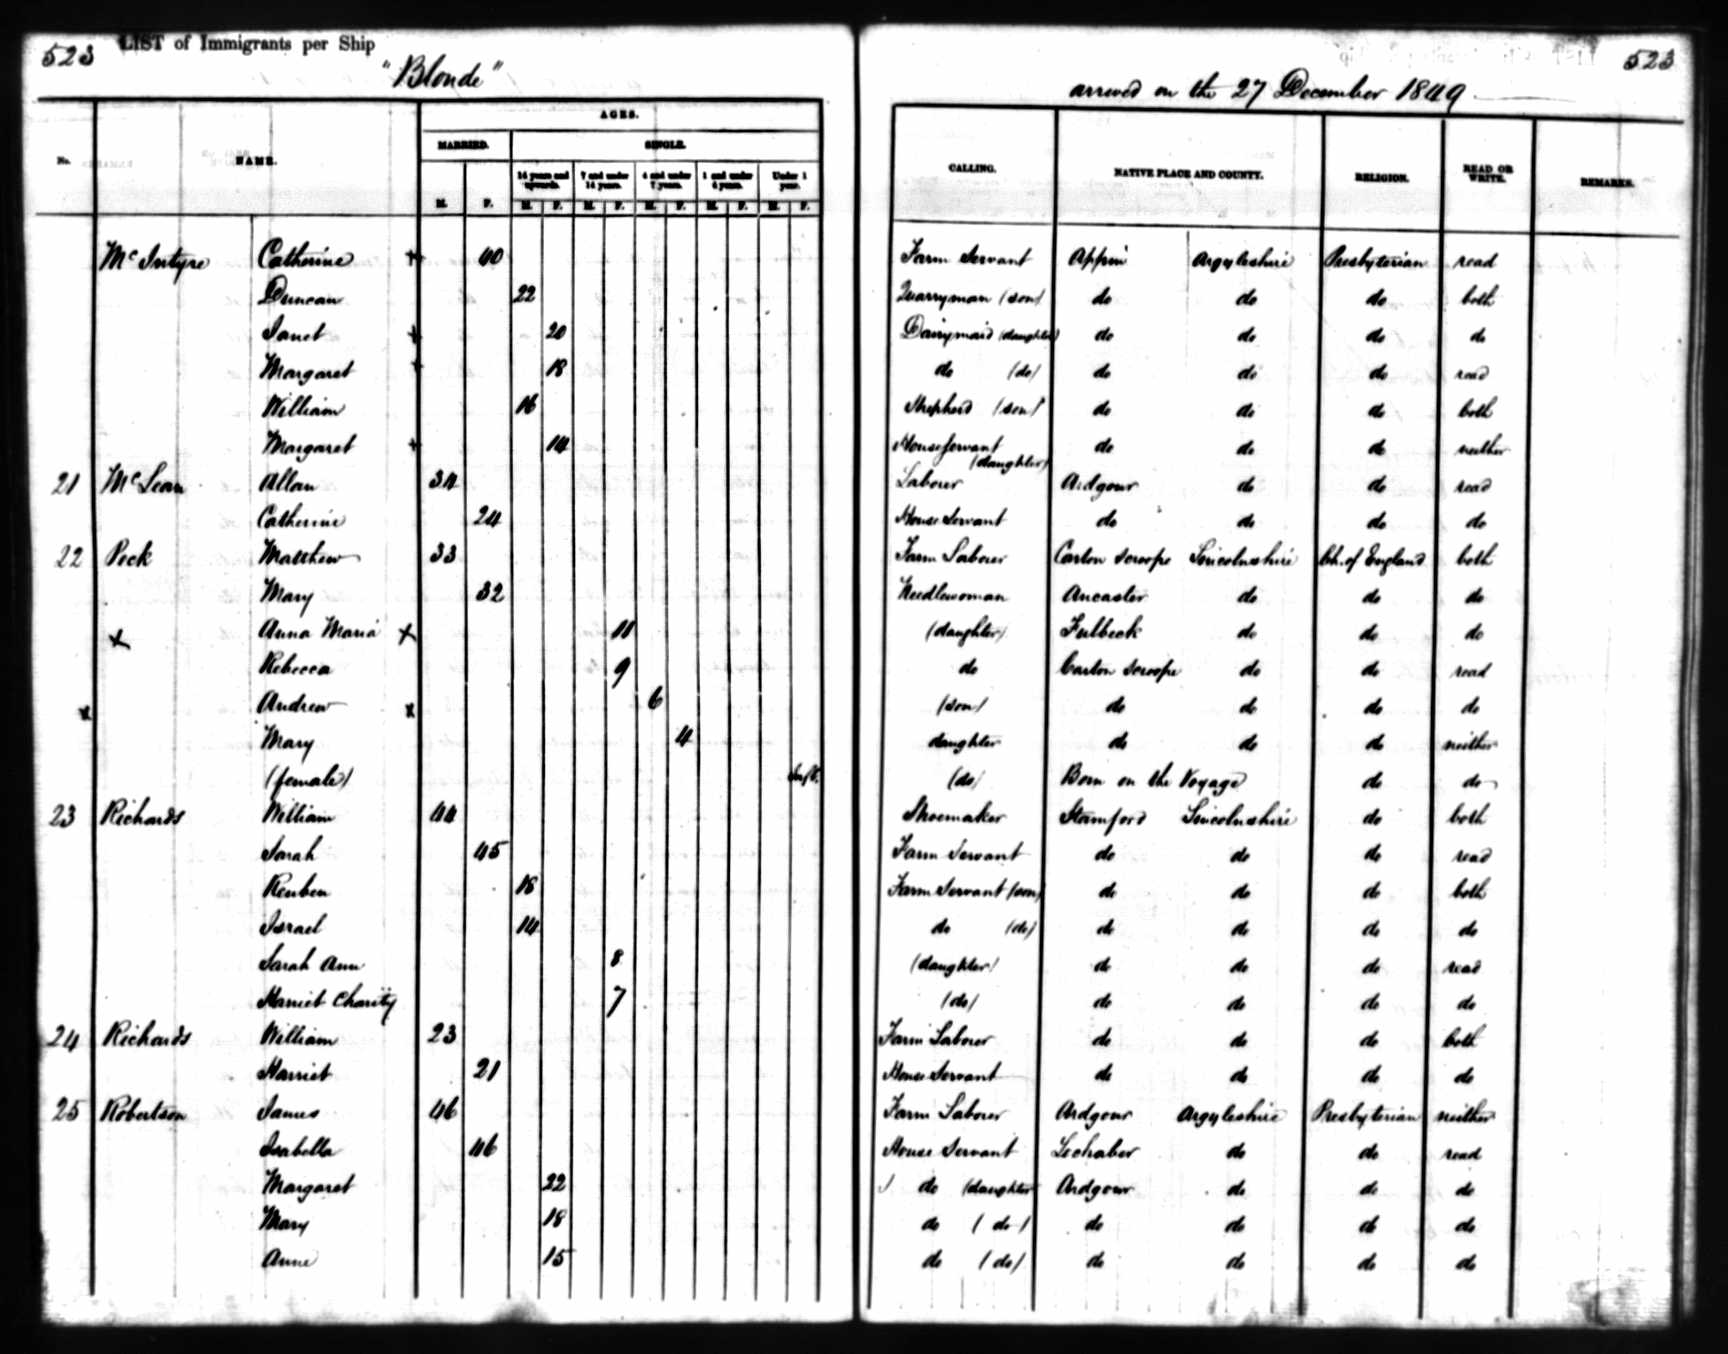 523 LIST of Immigrants per Ship
"Blonde"
arrived on the 27 December 1849 523
No. NAME. AGES. CALLING. NATIVE PLACE AND COUNTY. RELIGION. READ OR WRITE. REMARKS.
MARRIED. SINGLE.
14 years and upwards. 7 and under 14 years. 4 and under 7 years. 1 and under 4 years. Under 1 year.
M. F. M. F. M. F. M. F. M. F. M. F.
McIntyre Catherine + 40 Farm Servant Appin Argyleshire Presbyterian read
Duncan 22 Quarryman (son) do do do both
Janet + 20 Dairymaid (daughter) do do do do
Margaret + 18 do (do) do do do read
William 16 Shepherd (son) do do do both
Margaret + 14 House Servant (daughter) do do do neither
21 McLean Allan 34 Laborer Ardgour do do read
Catherine 24 House Servant do do do do
22 Peck Matthew 33 Farm Laborer Carlon Scroope Lincolnshire Ch. of England both
Mary 32 Needlewoman Ancaster do do do
x Anna Maria x 11 (daughter) Fulbeck do do do
Rebecca 9 do Carlon Scroope do do read
x Andrew x 6 (son) do do do do
Mary 4 daughter do do do neither
(female) Inft. (do) Born on the Voyage do do
23 Richards William 44 Shoemaker Stamford Lincolnshire do both
Sarah 45 Farm Servant do do do read
Reuben 18 Farm Servant (son) do do do both
Israel 14 do (do) do do do do
Sarah Ann 8 (daughter) do do do read
Harriet Charity 7 (do) do do do do
24 Richards William 23 Farm Laborer do do do both
Harriet 21 House Servant do do do do
25 Robertson James 46 Farm Laborer Ardgour Argyleshire Presbyterian neither
Isabella 46 House Servant Lochaber do do read
Margaret 22 do (daughter Ardgour do do do
Mary 18 do (do) do do do do
Anne 15 do (do) do do do do